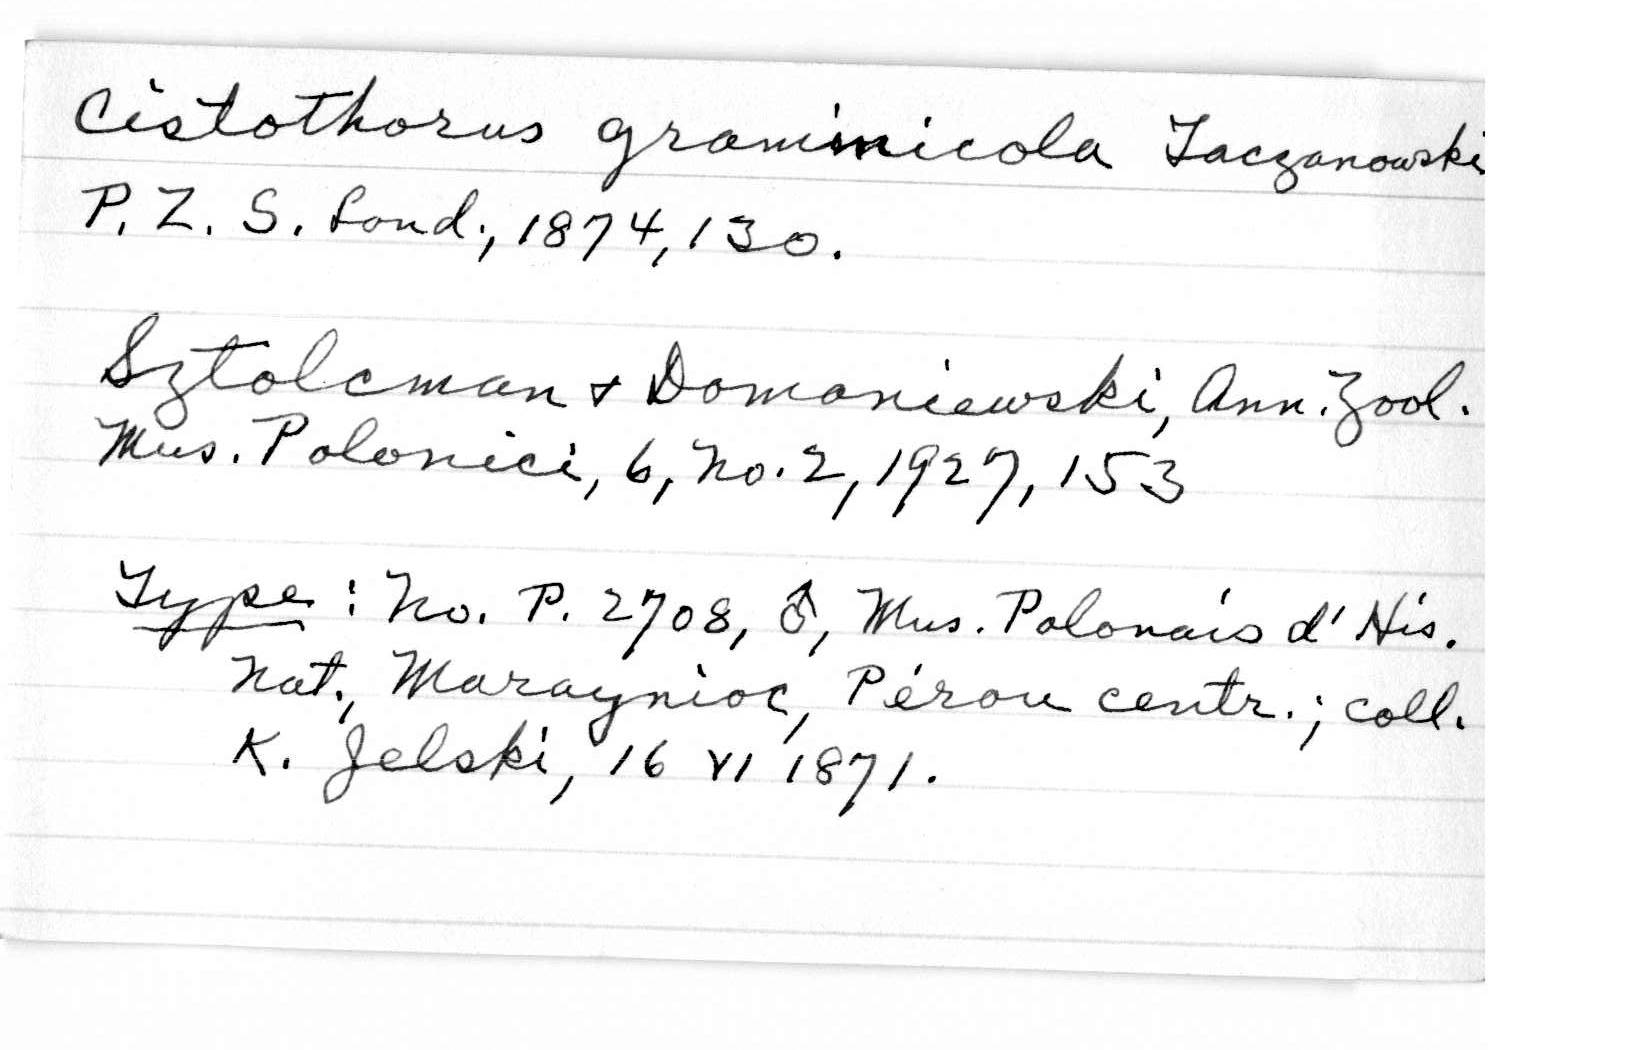 Cistothorus graminicola Taczanowski
P. Z. S. Lond., 1874, 130.
Sztolcman + Domaniewski, Ann. Zool.
Mus. Polonici, 6, No. 2, 1927, 153
Type : No. P. 2708, ♂, Mus. Polonais d' His.
Nat., Maraynioc, Pérou centr.; coll.
K. Jelski, 16 VI 1871.